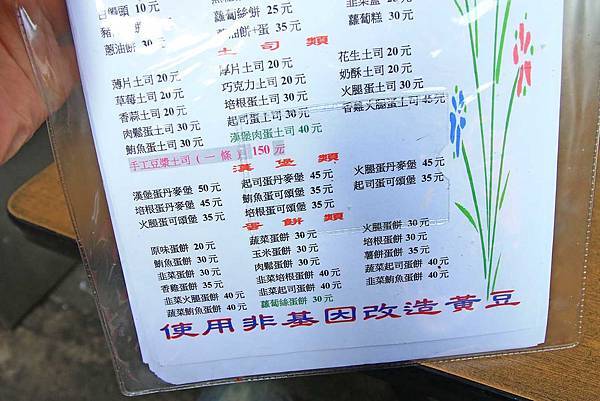 饅頭 10元
蘿蔔絲餅 25元
蘿蔔糕 30元
蔥油餅 30元
油餅+蛋 35元
土司類
薄片土司 20元 厚片土司 20元 花生土司 20元
草莓土司 20元 巧克力土司 20元 奶酥土司 20元
香蒜土司 20元 培根蛋土司 30元 火腿蛋土司 30元
肉鬆蛋土司 30元 起司蛋土司 30元 香雞火腿蛋土司 45元
鮪魚蛋土司 30元 漢堡肉蛋土司 40元
手工豆漿土司(一條)150元
漢堡類
漢堡蛋丹麥堡 50元 起司蛋丹麥堡 45元 火腿蛋丹麥堡 45元
培根蛋丹麥堡 45元 鮪魚蛋可頌堡 35元 起司蛋可頌堡 35元
火腿蛋可頌堡 35元 培根蛋可頌堡 35元
蛋餅類
原味蛋餅 20元 蔬菜蛋餅 30元 火腿蛋餅 30元
鮪魚蛋餅 30元 玉米蛋餅 30元 培根蛋餅 30元
韭菜蛋餅 30元 肉鬆蛋餅 30元 薯餅蛋餅 35元
香雞蛋餅 35元 韭菜培根蛋餅 40元 蔬菜起司蛋餅 40元
韭菜火腿蛋餅 40元 韭菜起司蛋餅 40元 韭菜鮪魚蛋餅 40元
蔬菜鮪魚蛋餅 40元 蘿蔔絲蛋餅 30元
使用非基因改造黃豆